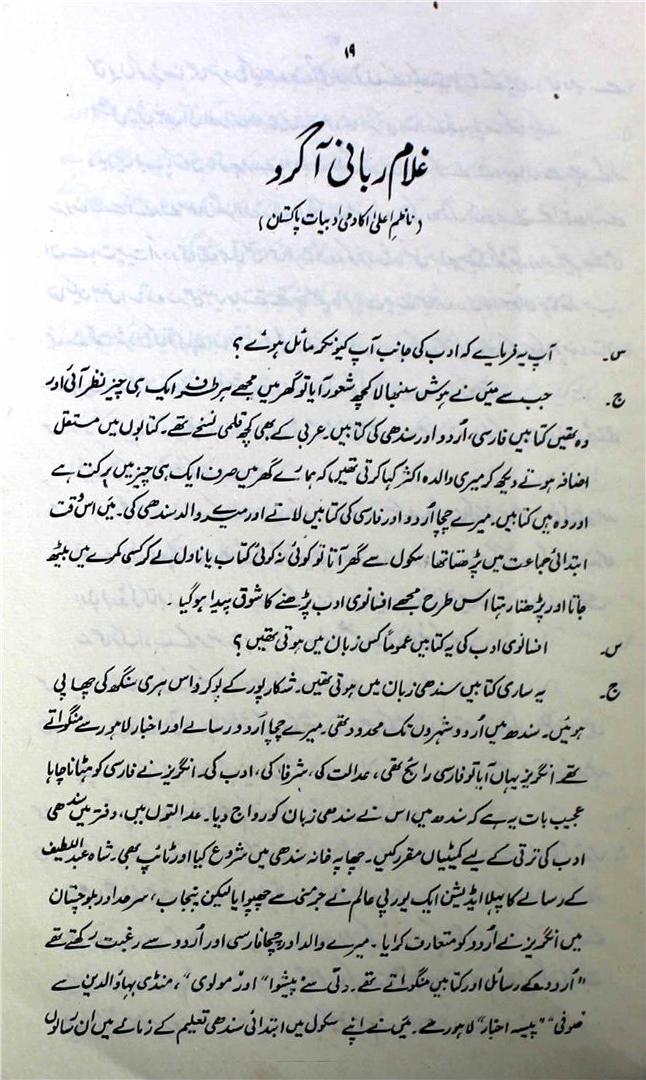 ۱۹
غلام ربانی آگرو
(ناظمِ اعلیٰ اکادمی ادبیات پاکستان)
س۔ آپ یہ فرمایے کہ ادب کی جانب آپ کیونکر مائل ہوئے؟
ج۔ جب سے میں نے ہوش سنبھالا کچھ شعور آیا تو گھر میں مجھے ہر طرف ایک ہی چیز نظر آئی اور
وہ تھیں کتابیں فارسی، اُردو اور سندھی کی کتابیں۔ عربی کے بھی کچھ قلمی نسخے تھے۔ کتابوں میں مستقل
اضافہ ہوتے دیکھ کر میری والدہ اکثر کہا کرتی تھیں کہ ہمارے گھر میں صرف ایک ہی چیز میں برکت ہے
اور وہ ہیں کتابیں۔ میرے چچا اُردو اور فارسی کی کتابیں لاتے اور میرے والد سندھی کی۔ میں اس وقت
ابتدائی جماعت میں پڑھتا تھا سکول سے گھر آتا تو کوئی نہ کوئی کتاب یا ناول لے کر کسی کمرے میں بیٹھ
جاتا اور پڑھتا رہتا اس طرح مجھے افسانوی ادب پڑھنے کا شوق پیدا ہو گیا۔
س۔ افسانوی ادب کی یہ کتابیں عموماً کس زبان میں ہوتی تھیں؟
ج۔ یہ ساری کتابیں سندھی زبان میں ہوتی تھیں۔ شکارپور کے پوکرداس ہری سنگھ کی چھاپی
ہوئیں۔ سندھ میں اُردو شہروں تک محدود تھی۔ میرے چچا اُردو رسالے اور اخبار لاہور سے منگواتے
تھے انگریز یہاں آیا تو فارسی رائج تھی، عدالت کی، شرفا کی، ادب کی۔ انگریز نے فارسی کو ہٹانا چاہا
عجیب بات یہ ہے کہ سندھ میں اس نے سندھی زبان کو رواج دیا۔ عدالتوں میں، دفتر میں سندھی
ادب کی ترقی کے لیے کمیٹیاں مقرر کیں۔ چھاپہ خانہ سندھی میں شروع کیا اور ٹائپ بھی۔ شاہ عبداللطیف
کے رسالے کا پہلا ایڈیشن ایک یورپی عالم نے جرمنی سے چھپوایا لیکن پنجاب، سرحد اور بلوچستان
میں انگریز نے اُردو کو متعارف کرایا۔ میرے والد اور چچا فارسی اور اُردو سے رغبت رکھتے تھے
"اُردو کے رسائل اور کتابیں منگواتے تھے۔ دلّی سے پیشوا" اور "مولوی"، منڈی بہاؤ الدین سے
صوفی" "پیسہ اخبار" لاہور سے۔ میں نے اپنے سکول میں ابتدائی سندھی تعلیم کے زمانے میں ان رسالوں